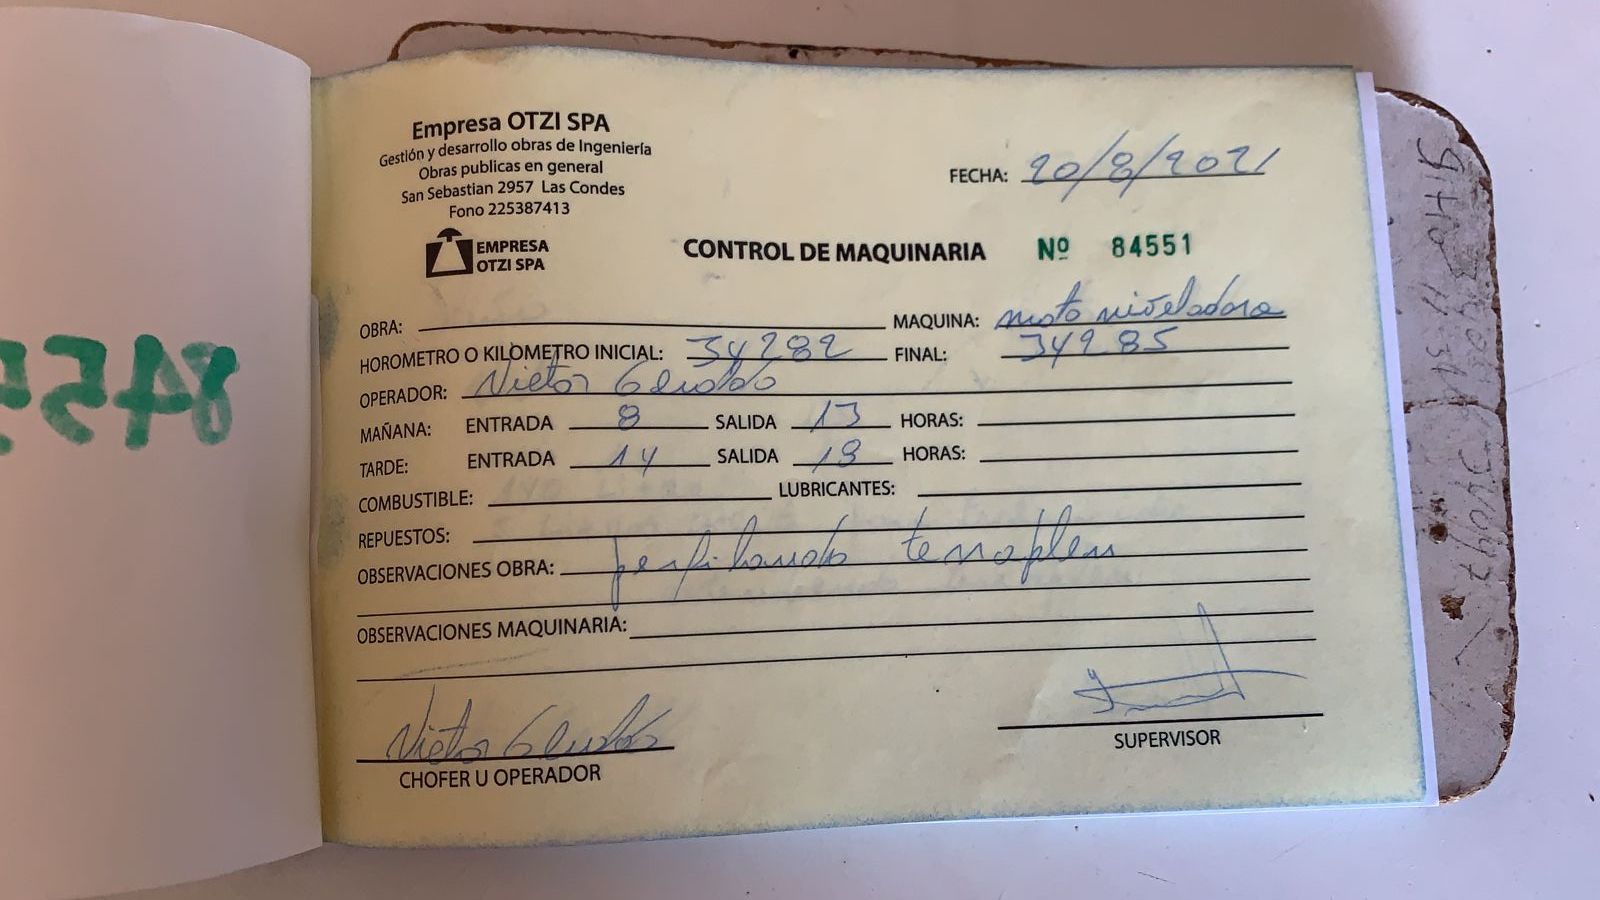 Empresa OTZI SPA
Gestión y desarrollo obras de Ingeniería
Obras publicas en general
San Sebastian 2957 Las Condes
Fono 225387413
EMPRESA
OTZI SPA
FECHA: 20/8/2021
CONTROL DE MAQUINARIA Nº 84551
OBRA: MAQUINA: moto niveladora
HOROMETRO O KILOMETRO INICIAL: 34282 FINAL: 34285
OPERADOR: Victor
MAÑANA: ENTRADA 8 SALIDA 13 HORAS:
TARDE: ENTRADA 14 SALIDA 18 HORAS:
COMBUSTIBLE: LUBRICANTES:
REPUESTOS:
OBSERVACIONES OBRA: perfilando terraplen
OBSERVACIONES MAQUINARIA:
Victor
CHOFER U OPERADOR
SUPERVISOR